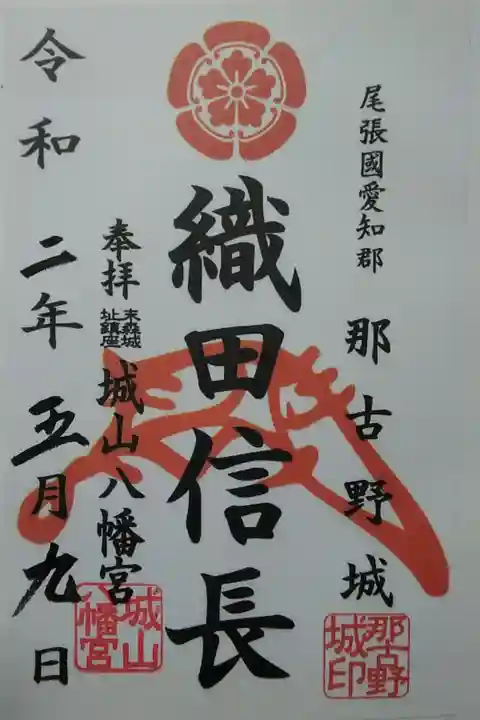 尾張國愛知郡
那古野城
那古野
城印
織田信長
奉拝
末森城
址鎮座
城山八幡宮
城山
八幡宮
令和二年五月九日